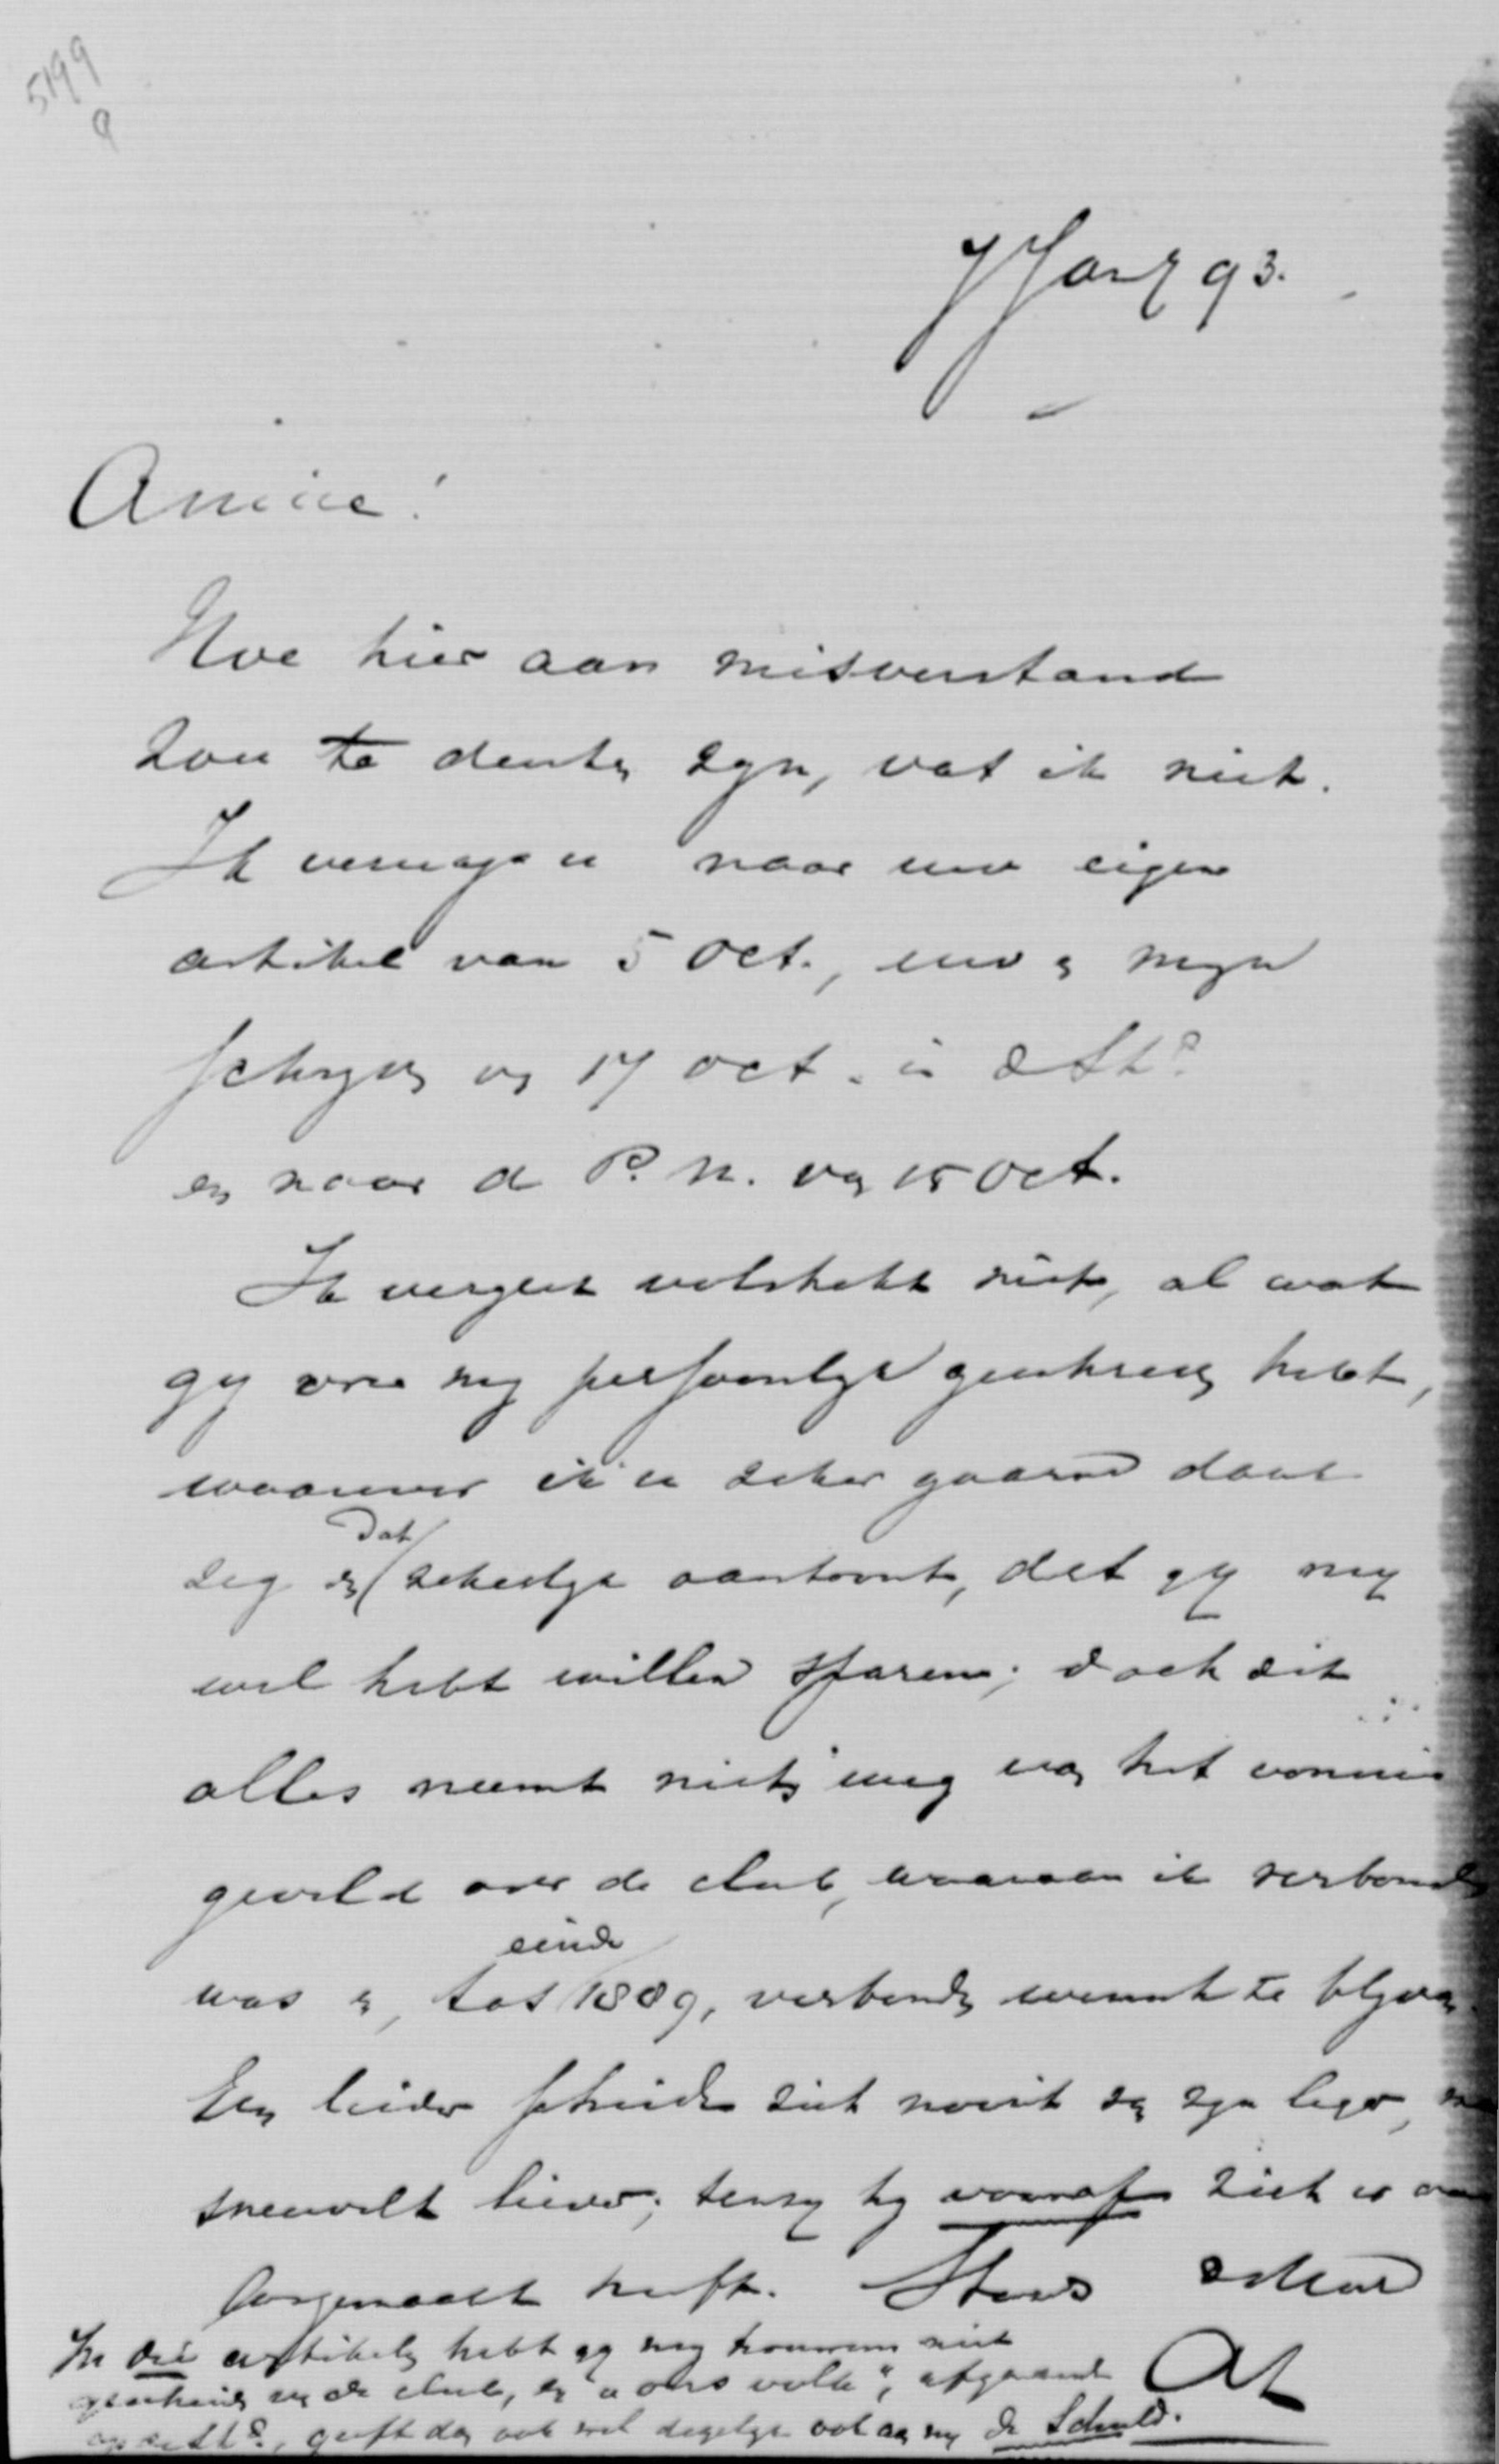 5199
9
7 Jany 93.
Amice!
Hoe hier aan misverstand
zou te denken zyn, vat ik niet.
Ik verwys u naar uw eigen
artikel van 5 Oct., uw en myn
schryven van 17 oct. in de Stt
en naar de P. N. van 15 Oct.
Ik vergeet volstrekt niet, al wat
gy voor my persoonlyk geschreven hebt,
waarvoor ik u zeker gaarne dank
zeg en dat zakelyk aantoont, dat gy my
wel hebt willen sparen; doch dit
alles neemt niets weg van het vonnis
geveld over de club, waaraan ik verbonden
was en, tot einde 1889, verbonden wensch te blyven.
Een leider scheidt zich nooit van zyn leger,
sneuvelt liever; tenzy hy vooraf zich er van
losgemaakt heeft. Steeds
In die artikelen hebt gy my trouwens niet
gescheiden van de club, en "ons volk", afgaande
geeft dan ook wel degelyk ook aan my de schuld.